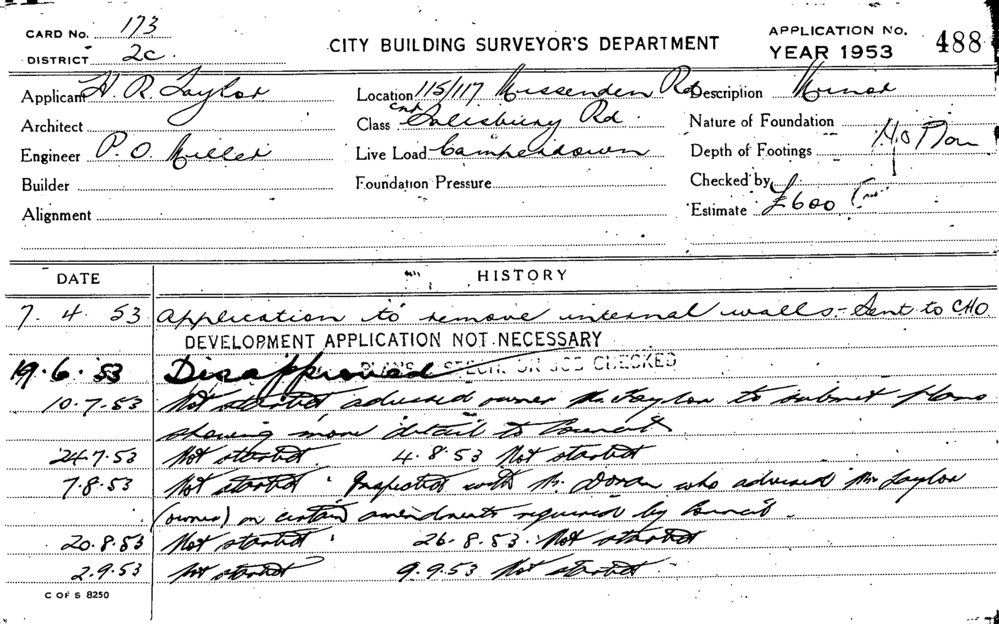 CARD No. 173
DISTRICT 2c.
CITY BUILDING SURVEYOR'S DEPARTMENT
APPLICATION No. 488
YEAR 1953
Applicant H. R. Taylor
Location 115/117 Missenden Rd
Description Minor
Architect
Class cnr Salisbury Rd.
Nature of Foundation
Engineer P. O. Miller
Live Load Camperdown
Depth of Footings
Builder
Foundation Pressure
Checked by
Alignment
Estimate £600
DATE HISTORY
7. 4. 53 Application to remove internal walls. - Sent to CHO
DEVELOPMENT APPLICATION NOT NECESSARY
19.6.53 Disapproved
PLANS SPECN. ON JOB CHECKED
10.7.53 Not started advised owner Mr Taylor to submit plans
showing more detail to Council
24.7.53 Not started. 4.8.53 Not started
7.8.53 Not started. Inspected with Mr. Doran who advised Mr Taylor
(owner) on certain amendments required by Council.
20.8.53 Not started. 26.8.53. Not started
2.9.53 Not started 9.9.53 Not started.
C OF S 8250